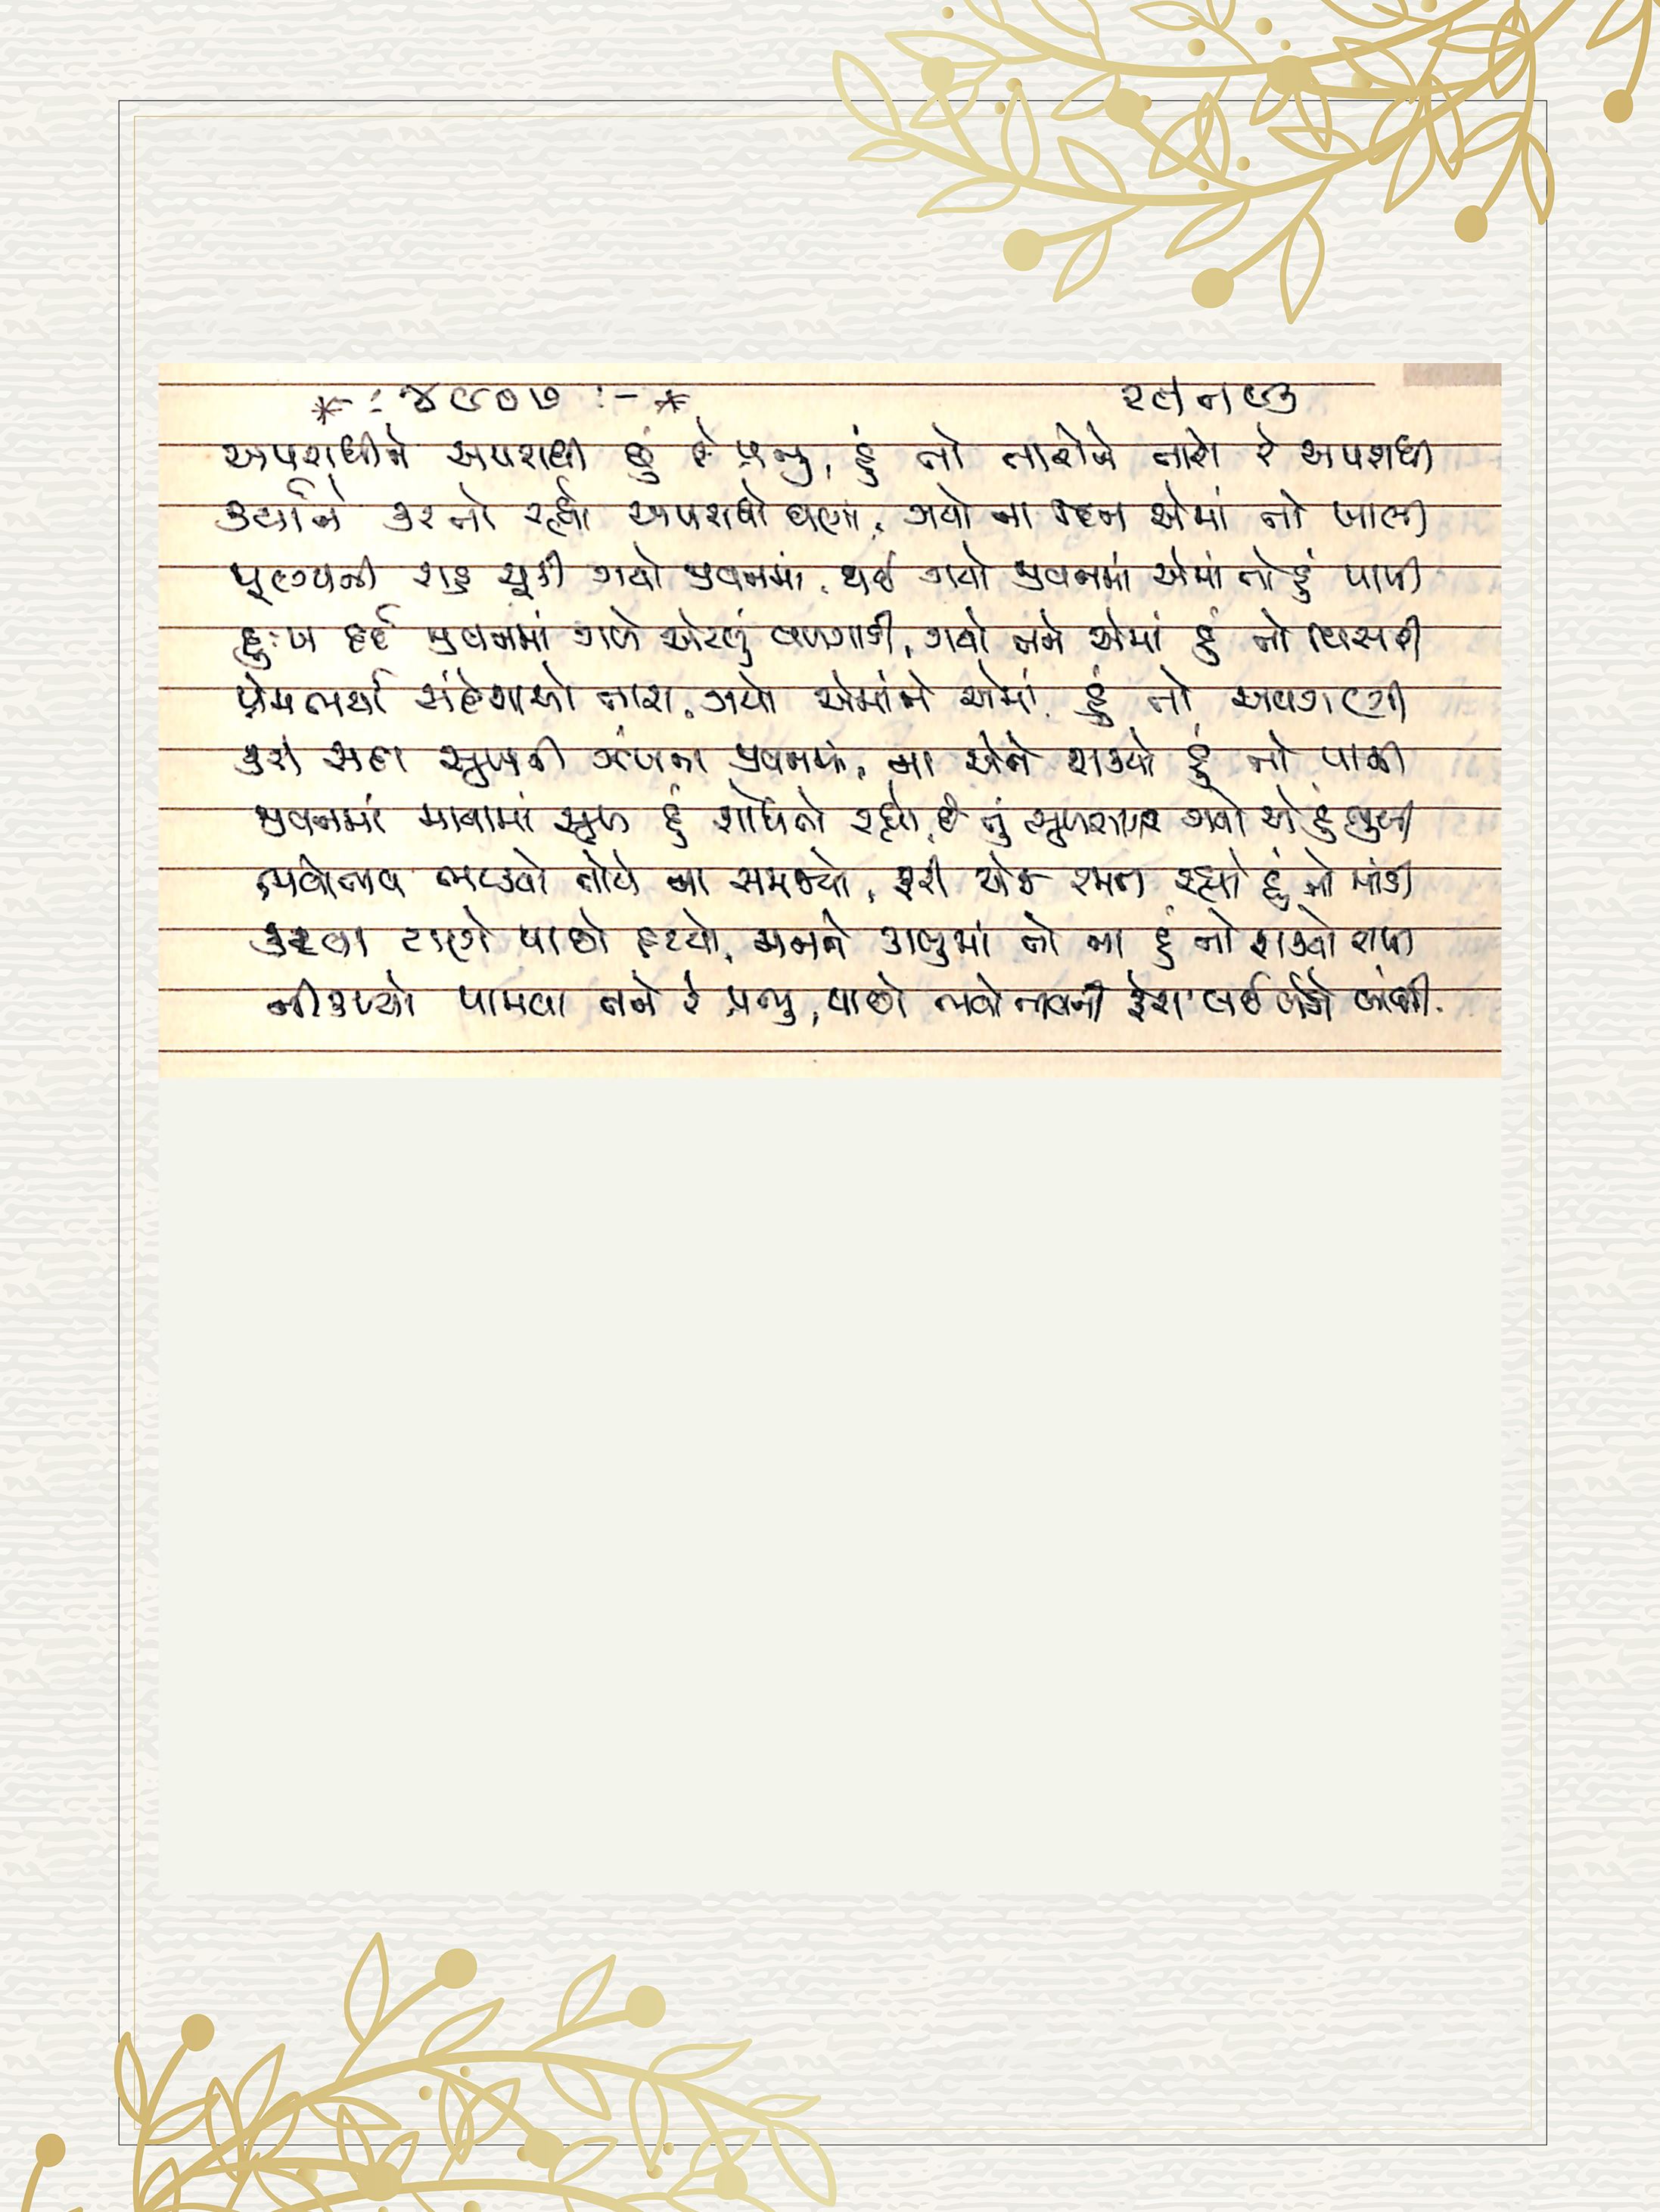 *-: ૪૯૦૭ :-* રતનજી
અપરાધીને અપરાધી છું હે પ્રભુ, હું તો તારોને તારો રે અપરાધી
કર્યાને કરતો રહ્યો અપરાધો ઘણા, ગયો ના દિન એમાં તો ખાલી
પૂણ્યની રાહ ચૂકી ગયો જીવનમાં, થઈ ગયો જીવનમાં એમાં તો હું પાપી
દુઃખ દર્દ જીવનમાં ગળે એટલું વળગાડી, ગયો તને એમાં હું તો વિસરી
પ્રેમભર્યા સંદેશાઓ તારા, ગયો એમાંને એમાં હું તો અવગણી
કરી સદા સુખની ઝંખના જીવનમાં, ના એને શક્યો હું તો પામી
જીવનમાં માયામાં સુખ હું શોધતો રહ્યો, છે તું સુખસાગર ગયો એ હું ભુલી
ભવોભવ ભટક્યો તોયે ના સમજ્યો, ફરી એજ રમત રહ્યો હું તો માંડી
કરવા ટાણે પાછો હટયો, મનને કાબુમાં તો ના હું તો શક્યો રાખી
નીકળ્યો પામવા તને રે પ્રભુ, પાછો ભવોભવની ફેરા લઈ બેઠો બાંધી.